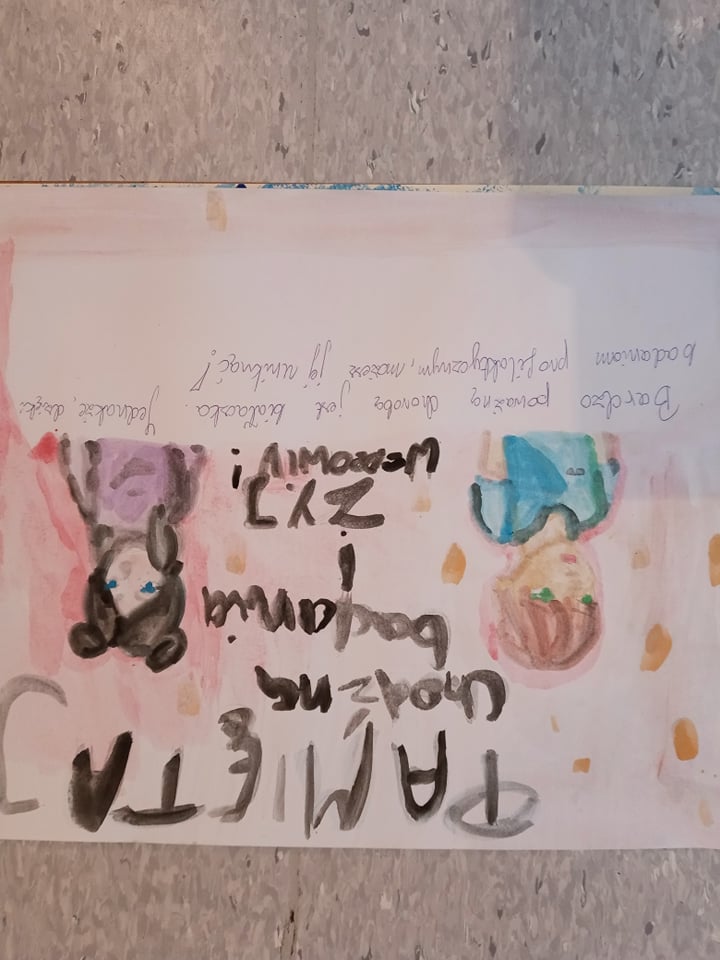 PAMIĘTAJ
Chodź na
badania
i
ŻYJ
WZDROWIU!
Bardzo poważną chorobą jest białaczka. Jednakże, dzięki
badaniom profilaktycznym, możesz ją uniknąć!